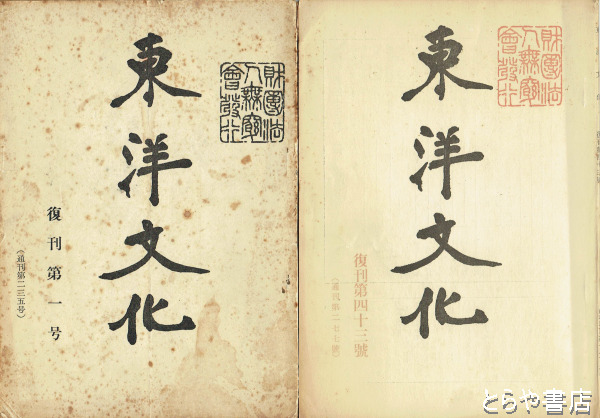 財團法
人無窮
會發行
東洋文化
復刊第一号
(通刊第二三五号)
財團法
人無窮
會發行
東洋文化
復刊第四十三號
(通刊第二七七號)
とらや書店